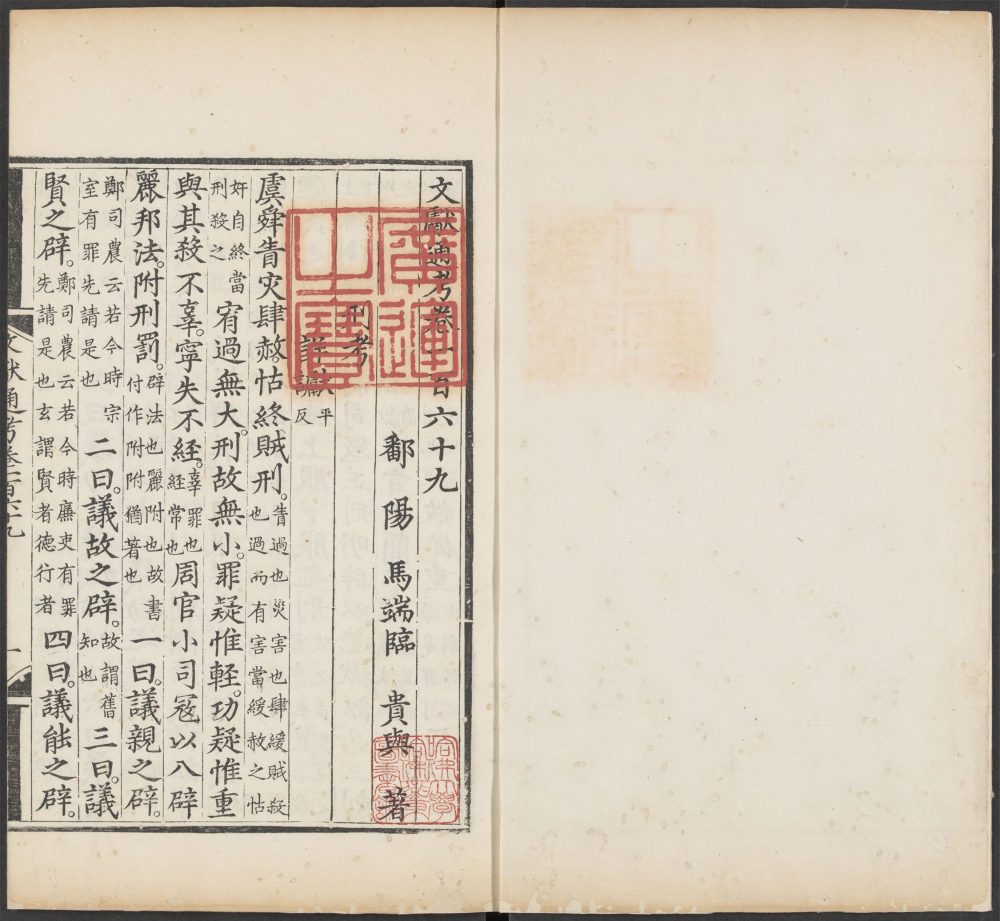 文獻通考卷一百六十九
鄱陽馬端臨貴與著
刑考
詳讞平反
虞舜眚灾肆赦。怙終賊刑。眚過也災害也肆緩賊殺
也過而有害當緩赦之怙
奸自終當
刑殺之宥過無大。刑故無小。罪疑惟輕。功疑惟重
與其殺不辜。寧失不經。辜罪也
經常也周官小司冦以八辟
麗邦法。附刑罰。辟法也麗附也故書
付作附附猶著也一曰。議親之辟。
鄭司農云若今時宗
室有罪先請是也二曰。議故之辟。故謂舊
知也三曰。議
賢之辟。鄭司農云若今時廉吏有罪
先請是也玄謂賢者德行者四曰。議能之辟。
文献通考卷一百六十九
一